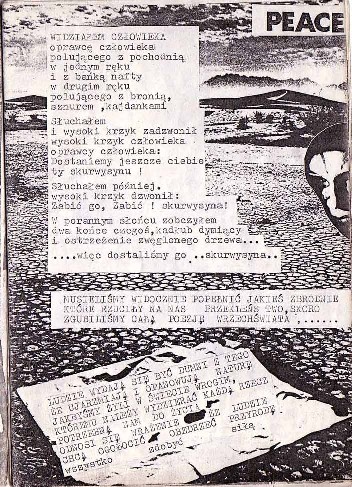 PEACE
WIDZIAŁEM CZŁOWIEKA
oprawcę człowieka
polującego z pochodnią
w jednym ręku
i z bańką nafty
w drugim ręku
polującego z bronią,
sznurem ,kajdankami
Słuchałem
i wysoki krzyk zadzwonił
wysoki krzyk człowieka
oprawcy człowieka:
Dostaniemy jeszcze ciebie
ty skurwysynu !
Słuchałem później,
wysoki krzyk dzwonił:
Zabić go, Zabić ! skurwysyna!
W porannym słońcu zobczyłem
dwa końce czegoś,kadłub dymiący
i ostrzeżenie zwęglonego drzewa...
....więc dostaliśmy go ..skurwysyna..
MUSIELIŚMY WIDOCZNIE POPEŁNIĆ JAKIEŚ ZBRODNIE
KTÓRE RZUCIŁY NA NAS PRZEKLEŃSTWO,SKORO
ZGUBILIŚMY CAŁĄ POEZJĘ WRZECHŚWIATA .......
LUDZIE WYDAJĄ SIĘ BYĆ DUMNI Z TEGO
ŻE UJARZMIAJĄ I OPANOWUJĄ NATURĘ
JAKBYŚMY ŻYLI W ŚWIECIE WROGIM,
KTÓREMU NALEŻY WYDZIERAĆ KAŻDĄ RZECZ
POTRZEBNĄ NAM DO ŻYCIA
ODNOSI SIĘ WRAŻENIE ŻE LUDZIE
CHCĄ OGŁOCIĆ OBEDRZEĆ PRZYRODĘ
wszystko zdobyć siłą